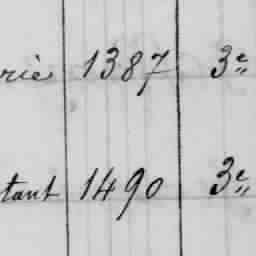 rie 1387 3e
tant 1490 3e